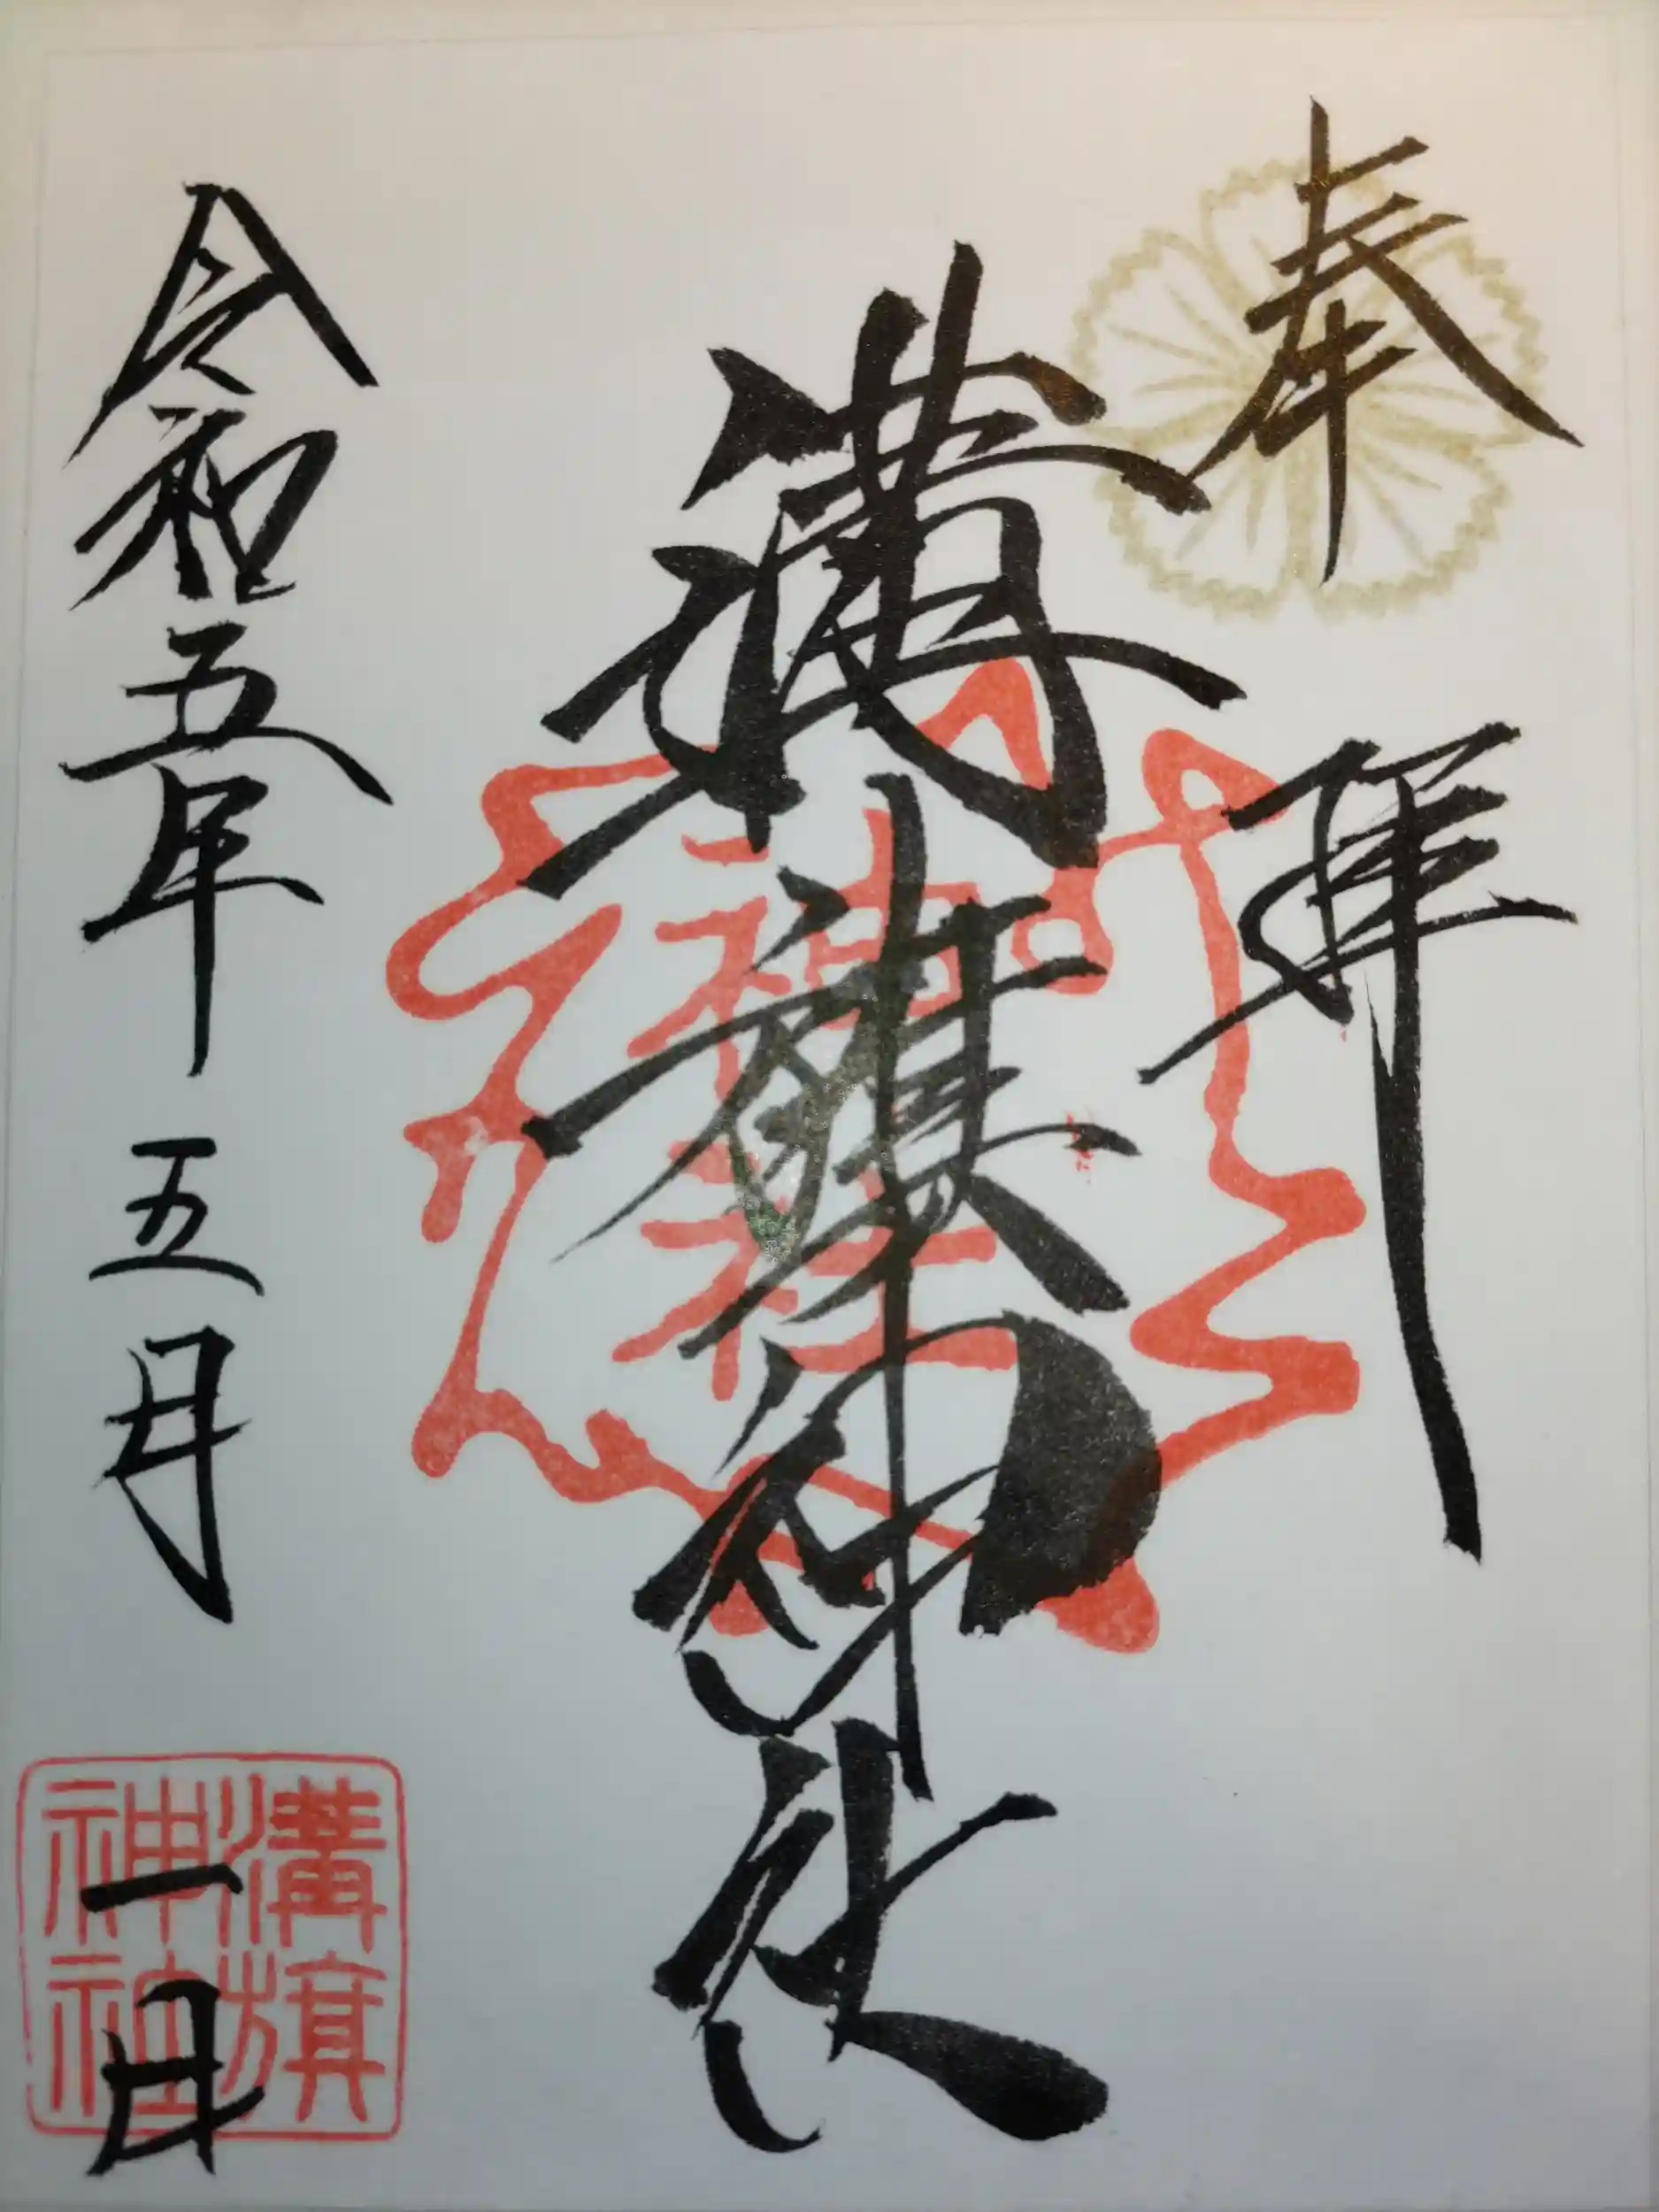 奉拝
溝旗神社
神社
令和五年五月一日
溝旗
神社